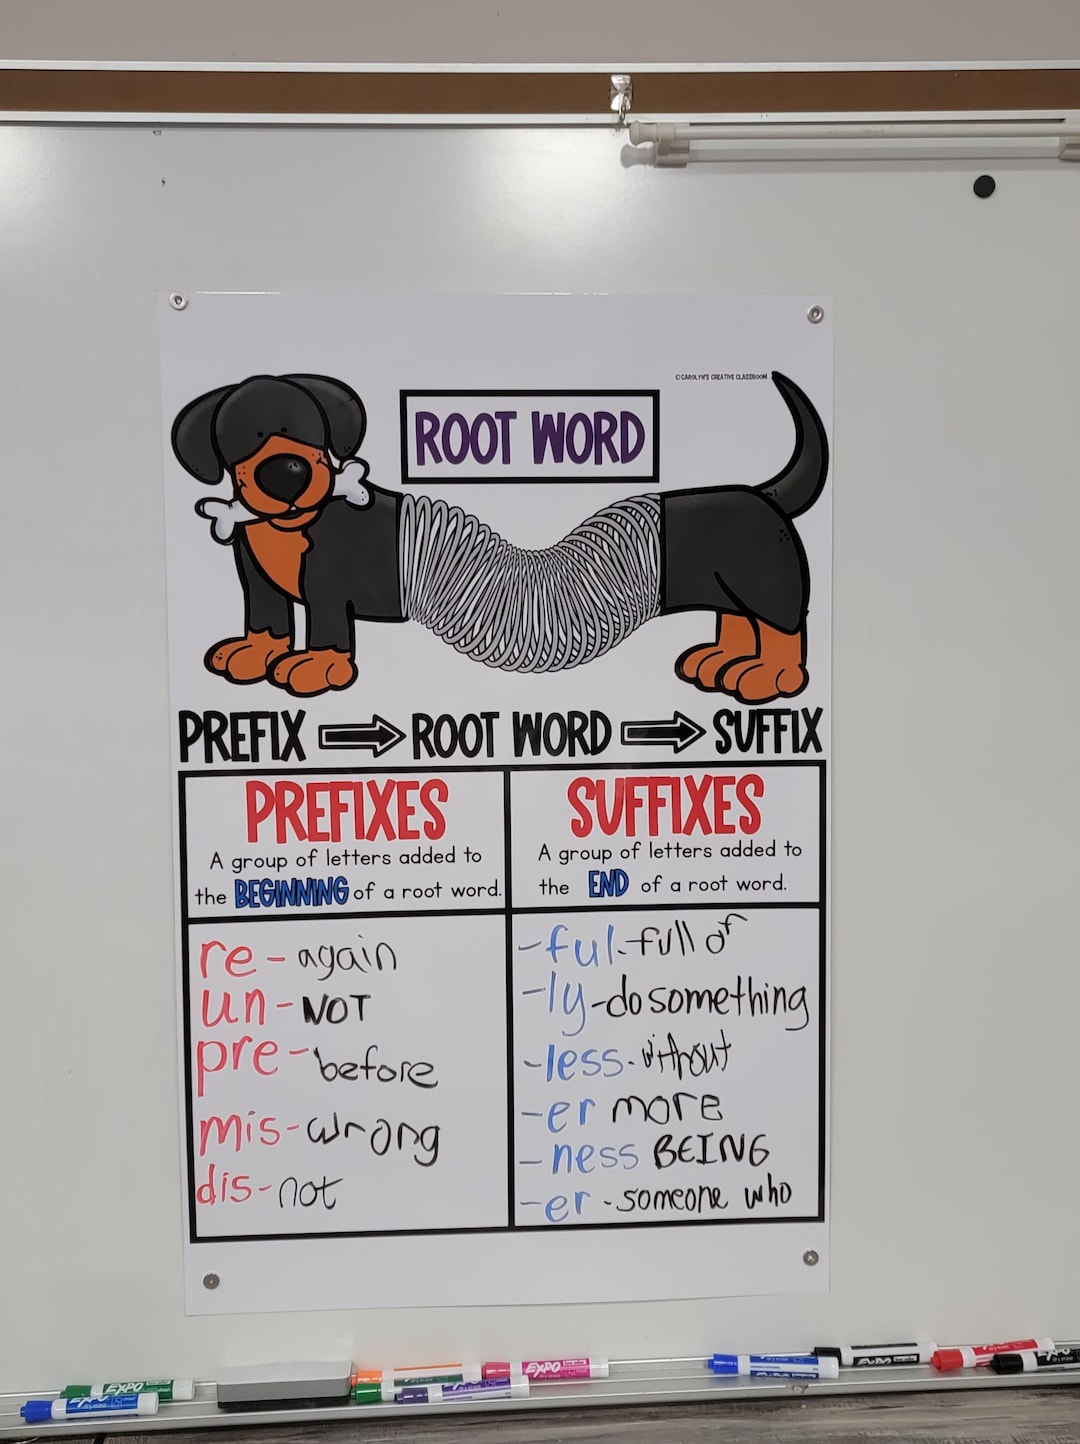 © CAROLYN'S CREATIVE CLASSROOM
ROOT WORD
PREFIX ROOT WORD SUFFIX
PREFIXES
A group of letters added to
the BEGINNING of a root word.
re - again
un - NOT
pre - before
mis - wrong
dis - not
SUFFIXES
A group of letters added to
the END of a root word.
-ful - full of
-ly - do something
-less - without
-er more
- ness BEING
-er - someone who
EXPO
EXPO
EXPO
EXPO
EXPO